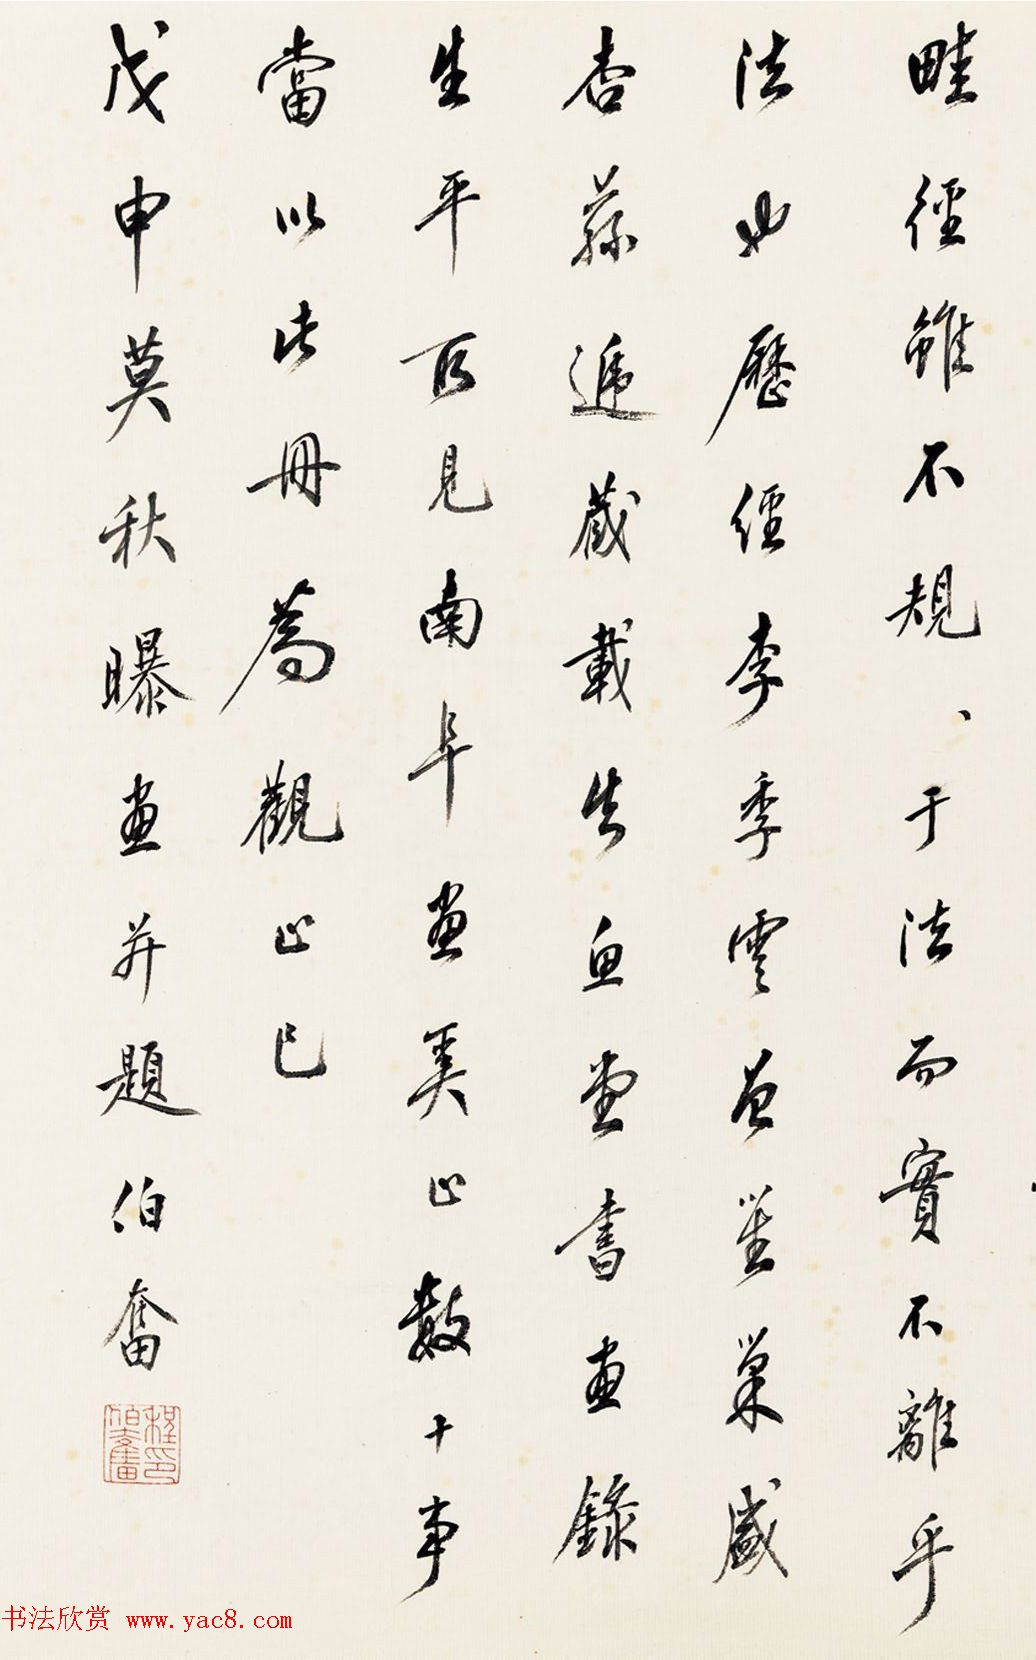 畦徑雖不規、于法而實不離乎
法也歷經李季雲曾笙巢盛
杏蓀遞藏載生魚堂書畫錄
生平所見南阜畫冀止數十事
當以此冊為觀止已
戊申莫秋曝畫并題伯奮
程伯奮印
书法欣赏 www.yac8.com